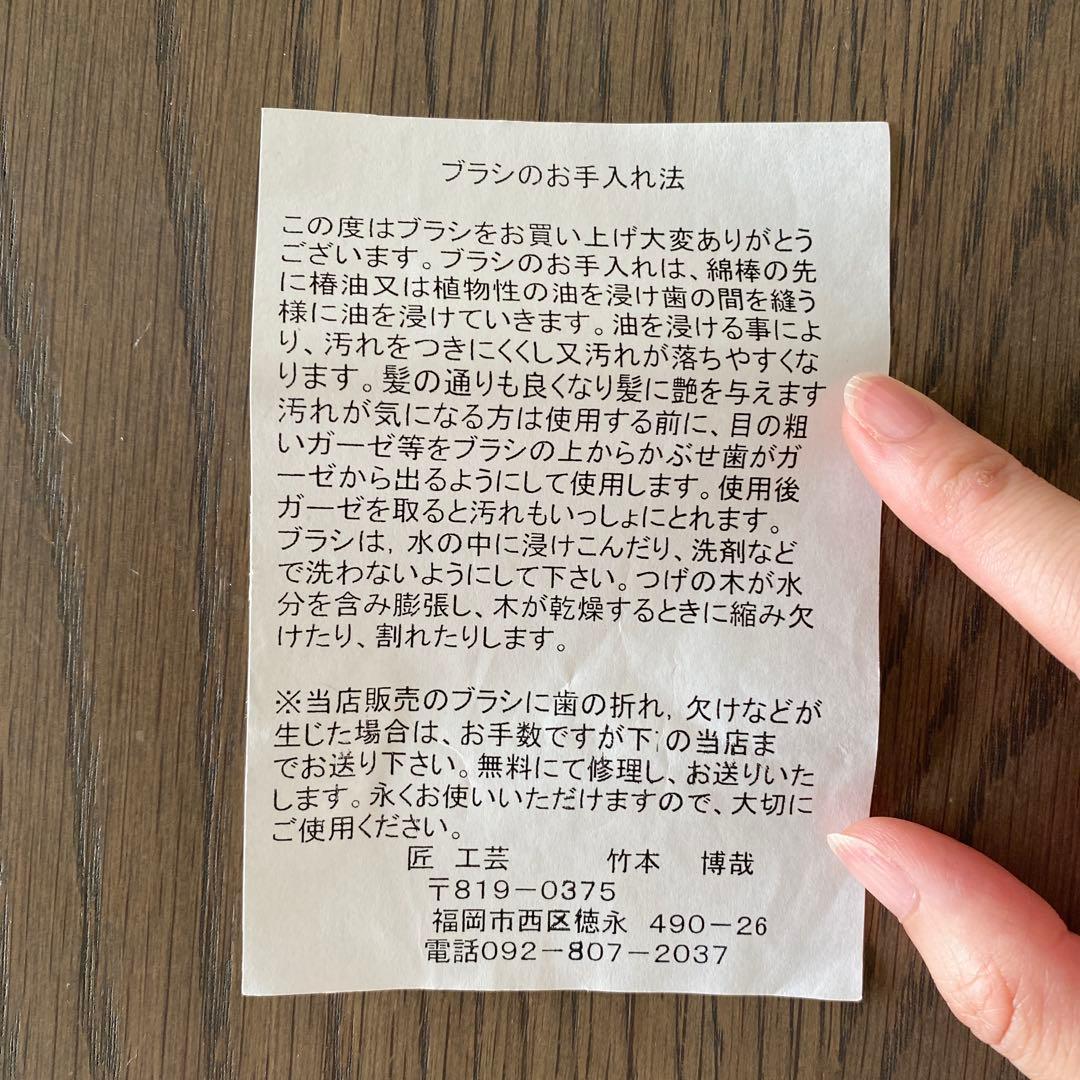 ブラシのお手入れ法
この度はブラシをお買い上げ大変ありがとう
ございます。ブラシのお手入れは、綿棒の先
に椿油又は植物性の油を浸け歯の間を縫う
様に油を浸けていきます。油を浸ける事によ
り、汚れをつきにくくし又汚れが落ちやすくな
ります。髪の通りも良くなり髪に艶を与えます
汚れが気になる方は使用する前に、目の粗
いガーゼ等をブラシの上からかぶせ歯がガ
ーゼから出るようにして使用します。使用後
ガーゼを取ると汚れもいっしょにとれます。
ブラシは, 水の中に浸けこんだり、洗剤など
で洗わないようにして下さい。つげの木が水
分を含み膨張し、木が乾燥するときに縮み欠
けたり、割れたりします。
※当店販売のブラシに歯の折れ, 欠けなどが
生じた場合は、お手数ですが下の当店ま
でお送り下さい。無料にて修理し、お送りいた
します。永くお使いいただけますので、大切に
ご使用ください。
匠 工芸 竹本 博哉
〒819-0375
福岡市西区徳永 490-26
電話092-807-2037